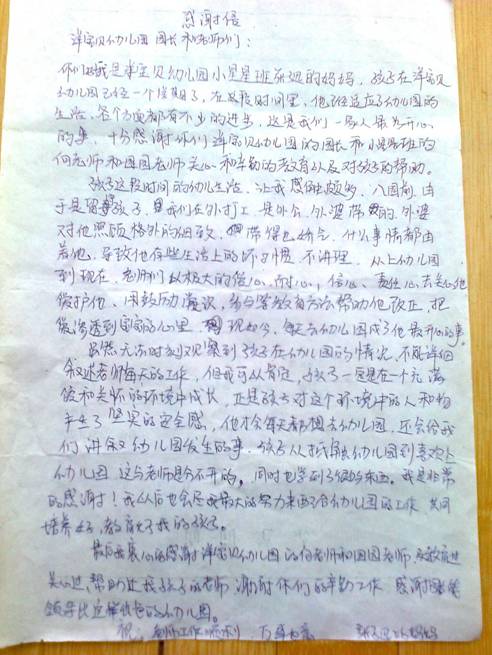 感谢信
洋宝贝幼儿园 园长和老师们：
你们好！我是洋宝贝幼儿园小星星班 的妈妈，孩子在洋宝贝
幼儿园已经一个学期了，在这段时间里，他已经适应了幼儿园的
生活，各个方面都有不少的进步，这是我们一家人最为开心
的事，十分感谢你们洋宝贝幼儿园的园长和小星星班的
何老师和田园老师关心和辛勤的教育以及对孩子的帮助。
孩子这段时间的幼儿生活，让我感触颇多，入园前，由
于是留守孩子，我们在外打工，是外公、外婆带的，外婆
对他照顾格外的细致，带得也娇气，什么事情都由
着他，导致他有些生活上的坏习惯，不讲理，从上幼儿园
到现在，老师们以极大的爱心、耐心、信心、责任心去关心他
爱护他，用鼓励 ，参与等教育方法帮助他改正，把
爱渗透到宝宝的心里，现如今，每天去幼儿园成了他最开心的事。
虽然无法时刻观察到孩子在幼儿园的情况，不能详细
叙述老师每天的工作，但我可以肯定，孩子一定是在一个充满
爱和关怀的环境中成长，正是孩子对这个环境中的人和物
产生了坚实的安全感，他才会每天都想去幼儿园，还会给我
们讲叙幼儿园发生的事，孩子从抵触幼儿园到喜欢上
幼儿园，这与老师是分不开的，同时也学到了很多东西，我是非常
的感谢！我从后也会尽我最大的努力来配合幼儿园的工作，共同
培养好，教育好我的孩子。
最后我衷心的感谢洋宝贝幼儿园的何老师和田园老师，及教育过
关心过，帮助过我孩子的老师，谢谢你们的辛勤工作，感谢
领导 的幼儿园。
祝：老师工作顺利，万事如意